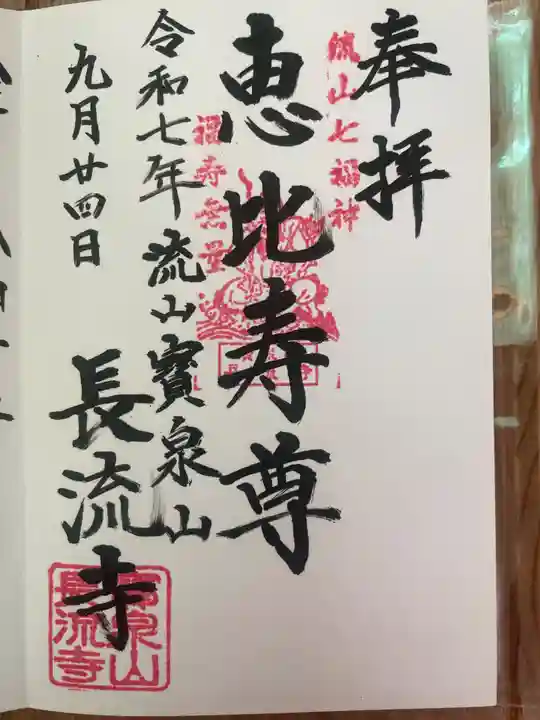 奉拝
流山七福神
恵比寿尊
福寿無量
令和七年 流山寳泉山
九月廿四日 長流寺
寳泉山
長流寺